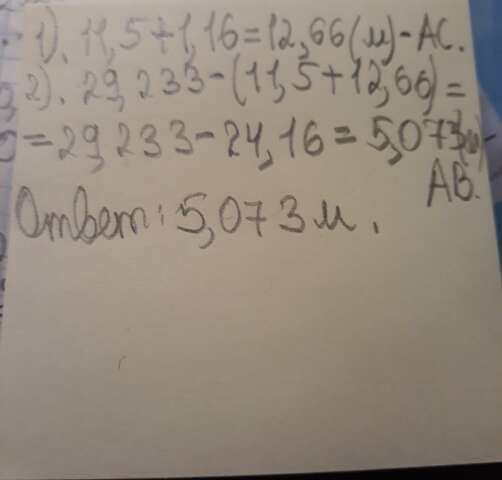 1). 11,5+1,16=12,66(м)-AC.
2). 29,233-(11,5+12,66)=
=29,233-24,16=5,073(м)-
AB.
Ответ: 5,073 м.